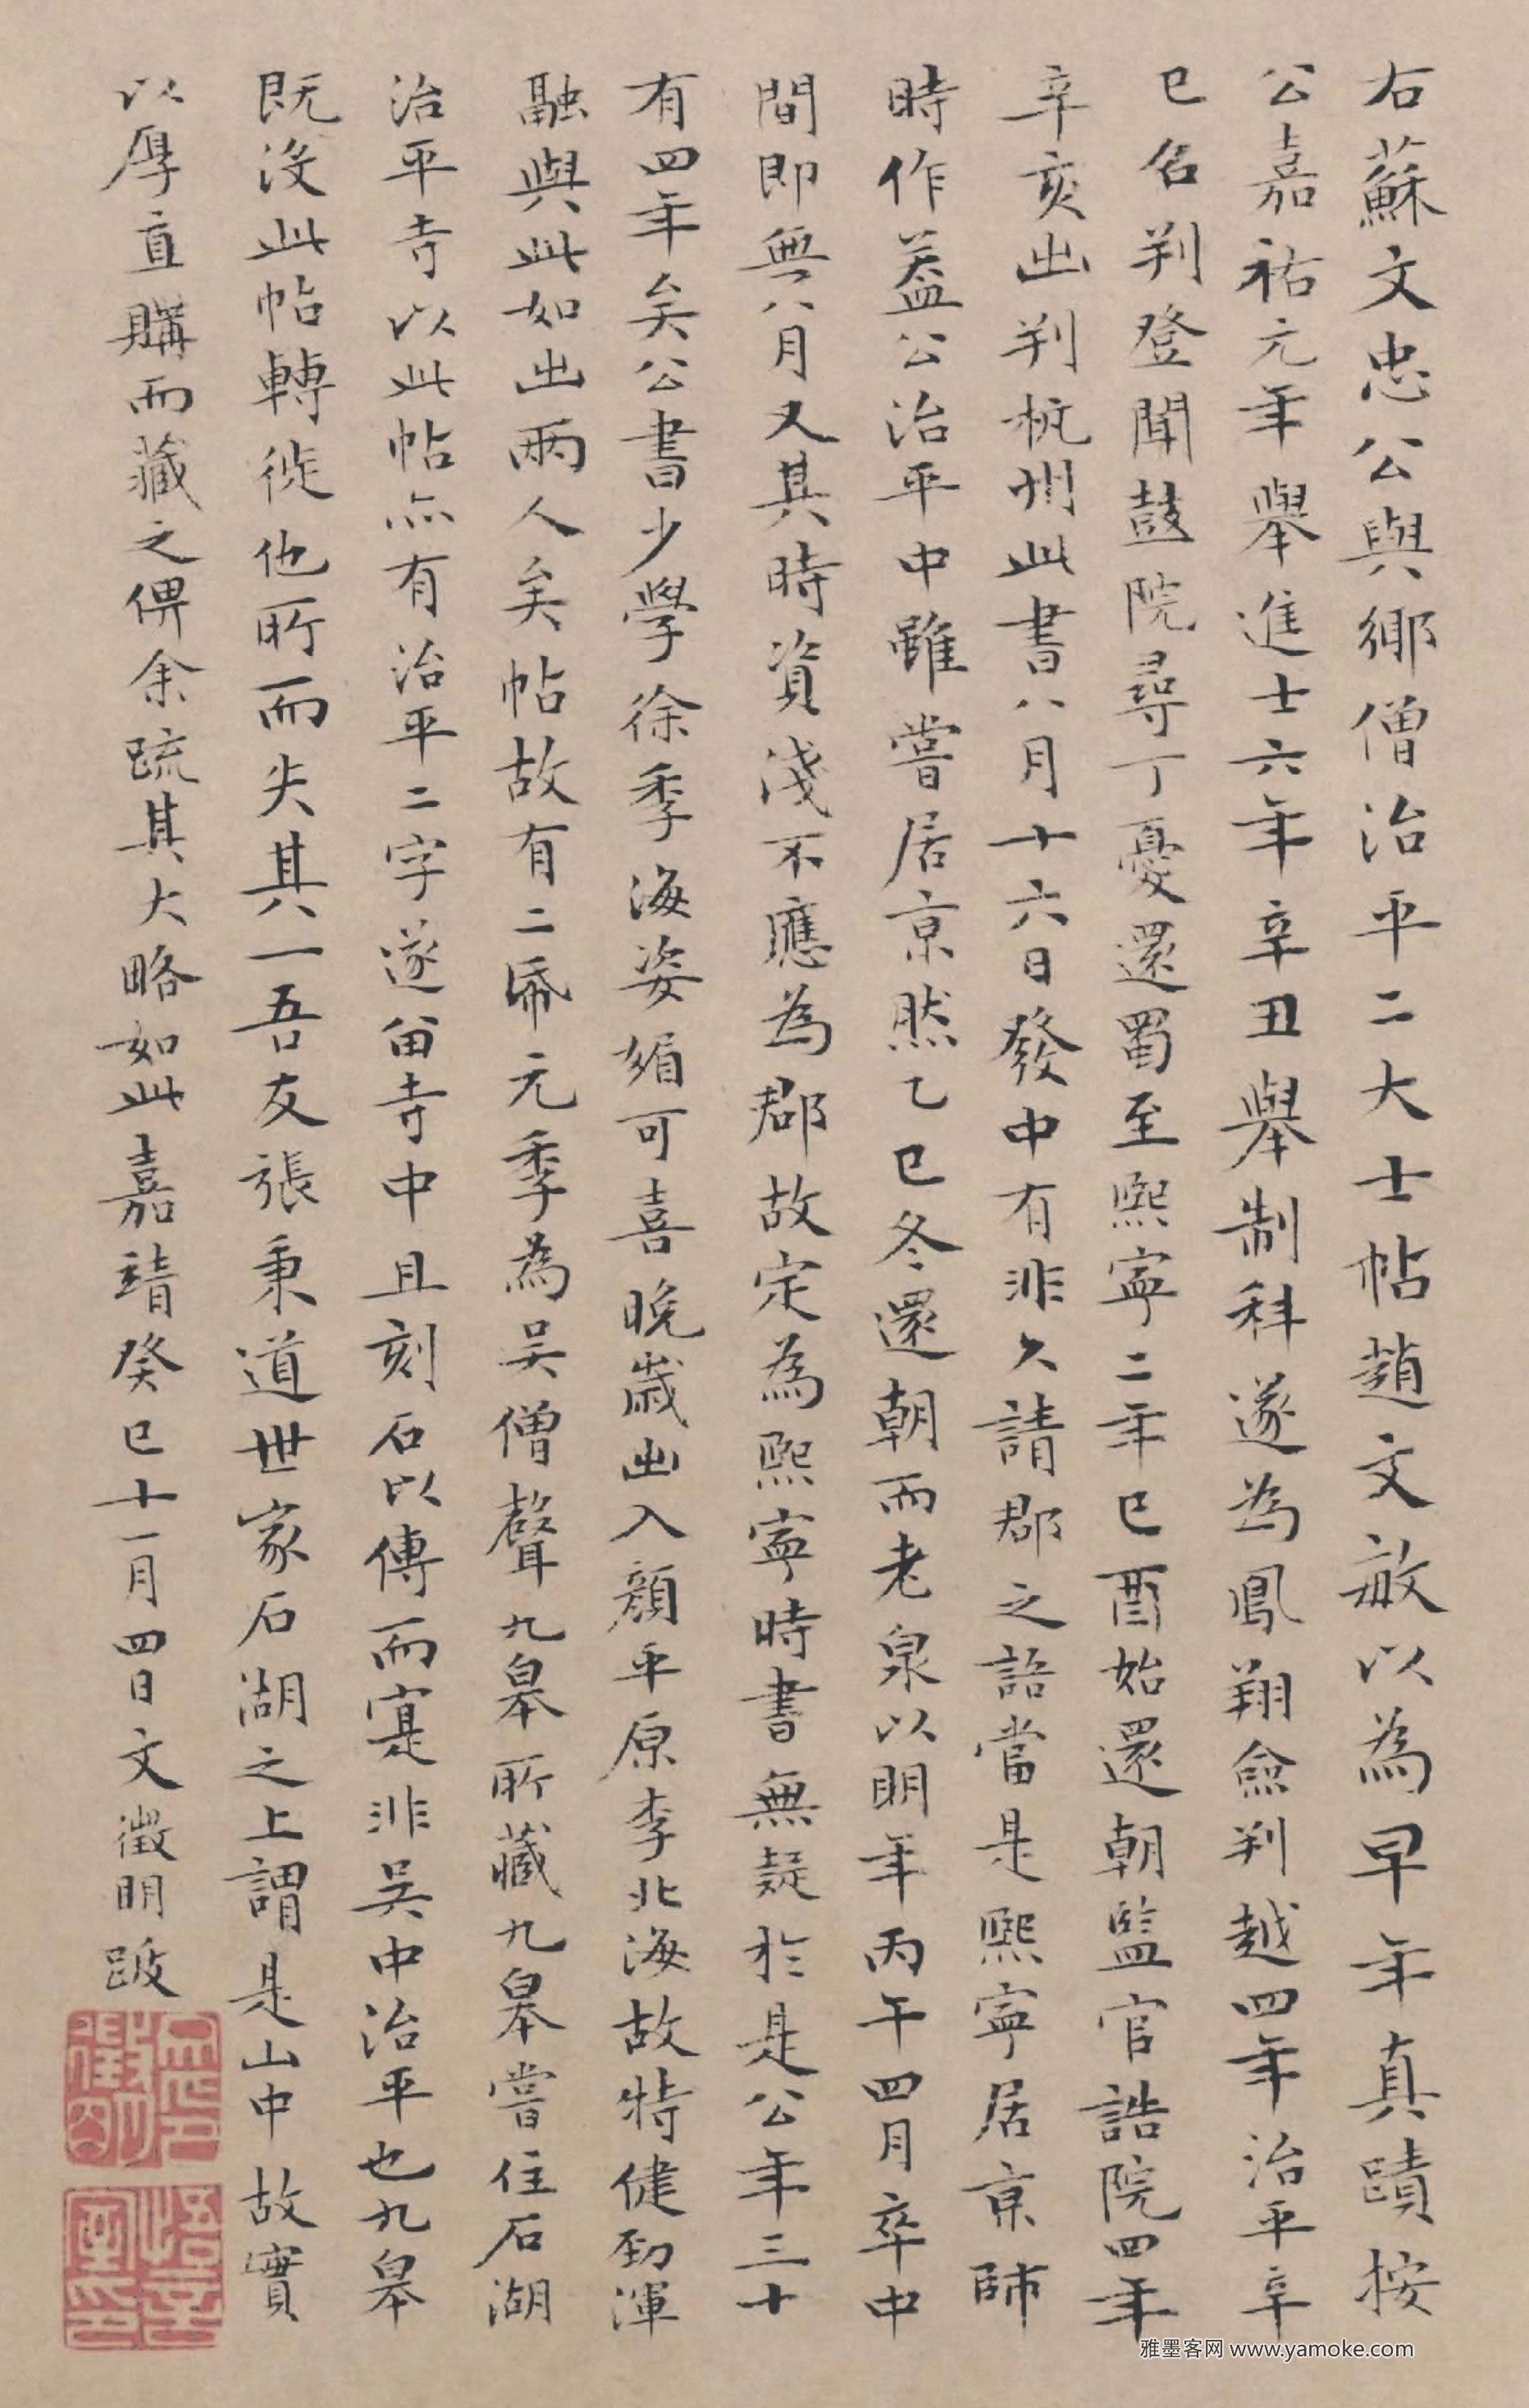 右蘇文忠公與鄉僧治平二大士帖趙文敏以為早年真蹟按
公嘉祐元年舉進士六年辛丑舉制科遂為鳳翔僉判越四年治平辛
巳名判登聞鼓院尋丁憂還蜀至熙寧二年巳酉始還朝監官誥院四年
辛亥出判杭州此書八月十六日發中有非久請郡之語當是熙寧居京師
時作蓋公治平中雖嘗居京然乙巳冬還朝而老泉以明年丙午四月卒中
間即無八月又其時資淺不應為郡故定為熙寧時書無疑於是公年三十
有四年矣公書少學徐季海姿媚可喜晚歲出入顏平原李北海故特健勁渾
融與此如出兩人矣帖故有二帋元季為吳僧聲九皋所藏九皋嘗住石湖
治平寺以此帖亦有治平二字遂留寺中且刻石以傳而寔非吳中治平也九皋
既沒此帖轉徙他所而失其一吾友張秉道世家石湖之上謂是山中故實
以厚直購而藏之俾余疏其大略如此嘉靖癸巳十一月四日文徵明跋
雅墨客网 www.yamoke.com